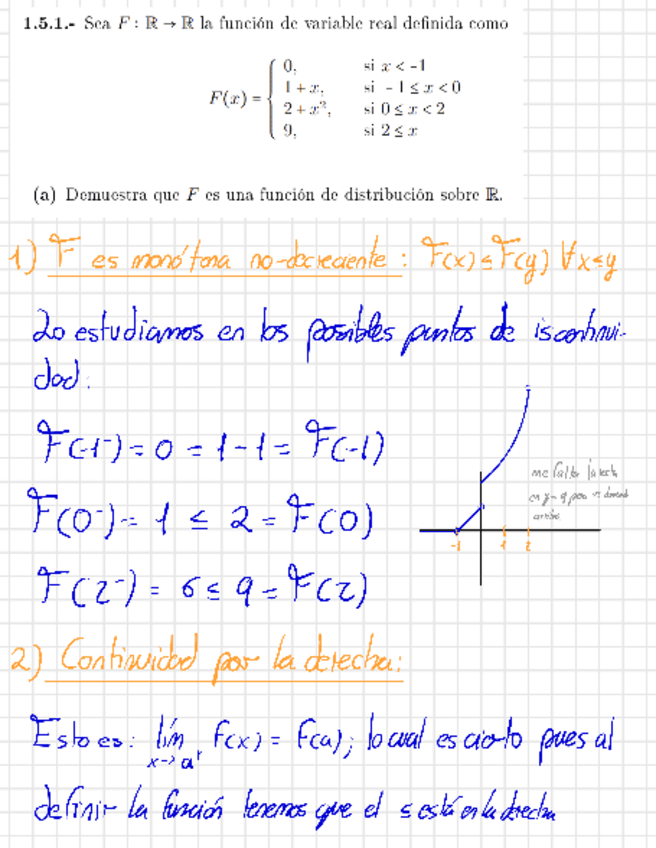 1.5.1.- Sea F : ℝ → ℝ la función de variable real definida como
F(x) = { 0, si x < -1
1 + x, si -1 ≤ x < 0
2 + x², si 0 ≤ x < 2
9, si 2 ≤ x
(a) Demuestra que F es una función de distribución sobre ℝ.
1) F es monótona no-decreciente : F(x) ≤ F(y) ∀x≤y
Lo estudiamos en los posibles puntos de iscontinui-
dad:
F(-1⁻) = 0 = 1-1 = F(-1)
F(0⁻) = 1 ≤ 2 = F(0)
F(2⁻) = 6 ≤ 9 = F(2)
me falta la recta
en y=9 pero
-1 1 2
2) Continuidad por la derecha:
Esto es: lím F(x) = F(a); lo cual es cierto pues al
x→a⁺
definir la función tenemos que el ≤ está en la derecha